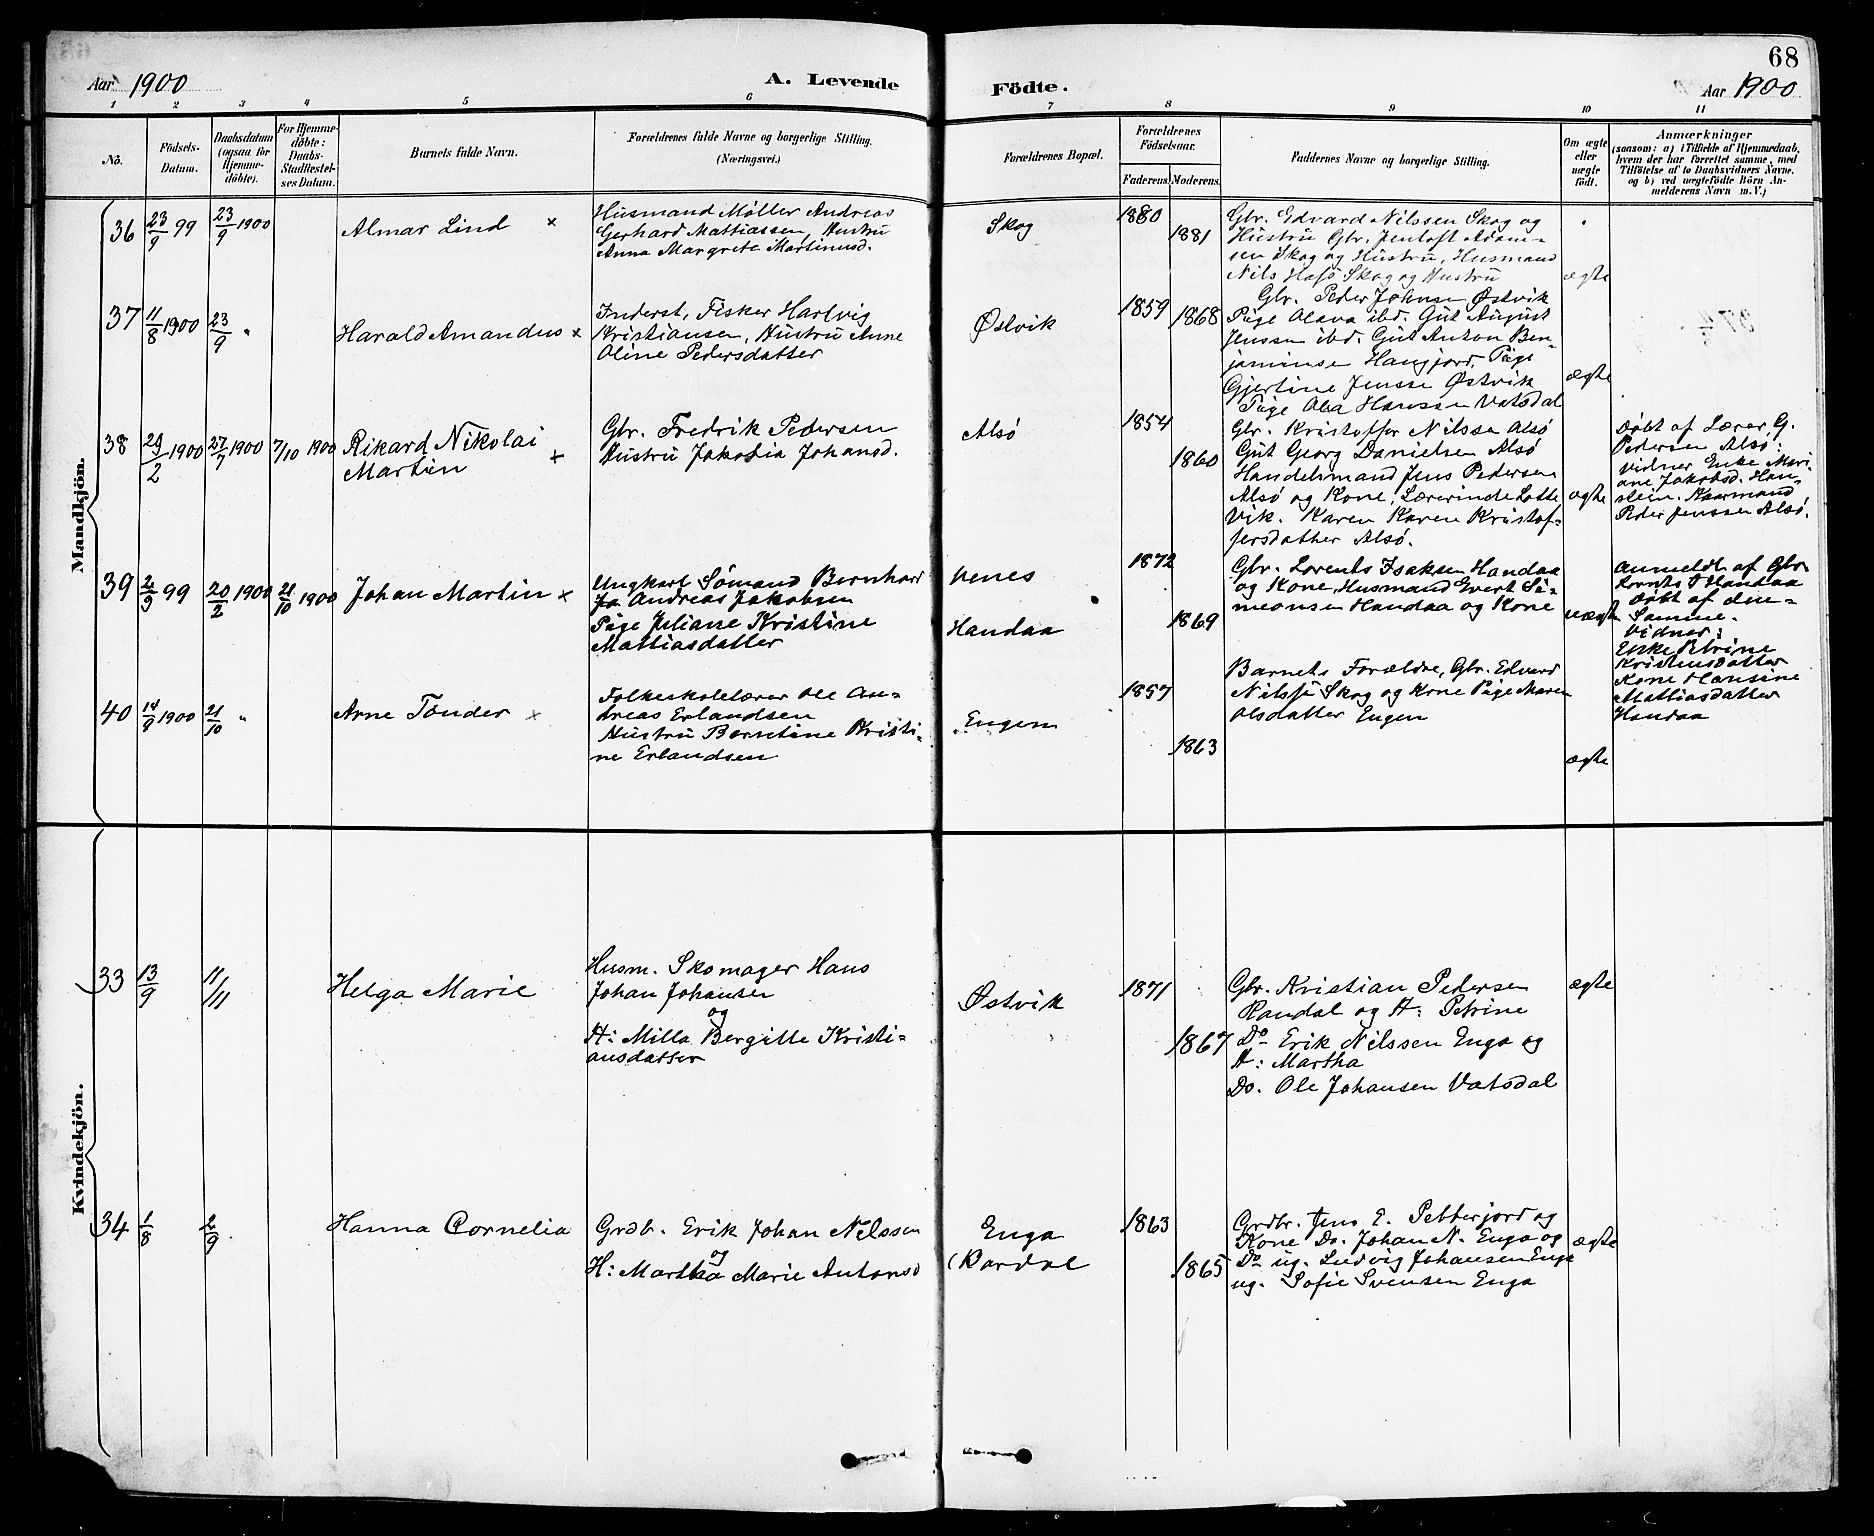 68
Aar 1900
A. Levende
Födte.
Aar 1900
1 2 3 4 5 6 7 8 9 10 11
No.
Födsels-
Datum.
Daabsdatum
(ogsaa for
Hjemme-
döbte).
For Hjemme-
döbte:
Daabs-
Stadfæstel-
ses Datum.
Barnets fulde Navn.
Forældrenes fulde Navne og borgerlige Stilling.
(Næringsvei.)
Forældrenes Bopæl.
Forældrenes
Födselsaar.
Faderens. Moderens.
Faddernes Navne og borgerlige Stilling.
Om ægte
eller
uægte
födt.
Anmærkninger
(saasom: a) i Tilfælde af Hjemmedaab,
hvem der har forrettet samme, med
Tilföielse af to Daabsvidners Navne,
og b) ved uægtefödte Börn An-
melderens Navn m. V.)
Mandkjön.
36 23/9 99 23/9 1900
Almar Lind ×
Husmand Möller Andreas
Gerhard Mattiassen, Hustru
Anna Margrete Martinusd.
Skog
1880
1881
Gbr. Edvard Nilssen Skog og
Hustru Gbr. Jentoft Adam-
sen Skog og Hustru, Husmand
Nils Skog og Hustru
ægte
37 11/8 1900 23/9 "
Harald Amandus ×
Inderst, Fisker Hartvig
Kristiansen, Hustru Anne
Oline Pedersdatter
Østvik
1859
1868
Gbr. Peder Johnsen Østvik
Pige Olava ibd. Gut August
Jenssen ibd. Gut Anton Ben-
jaminsen Hangjord, Pige
Gjertine Jensse Østvik
Pige Hanssen Vatsdal
ægte
38 29/2 1900 27/7 1900 7/10 1900
Rikard Nikolai
Martin ×
Gbr. Fredrik Pedersen
Hustru Jakobia Johansd.
Alsø
1854
1860
Gbr. Kristoffer Nilssen Alsø
Gut Georg Danielsen Alsø
Handelsmand Jens Pedersen
Alsø og Kone, Lærerinde Lotte
Vik. Karen Karen Kristof-
fersdatter Alsø.
ægte
Döbt af Lærer G.
Pedersen Alsø.
Vidner Enke Mari-
ane Jakobsd. Han-
stein. Kaarmand
Peder Jenssen Alsø.
39 2/9 99 20/2 1900 21/10 1900
Johan Martin ×
Ungkarl Sømand Bernhard
Andreas Jakobsen
Pige Juliane Kristine
Mattiasdatter
Venes
Handaa
1872
1869
Gbr. Lorents Isaksen Handaa
og Kone, Husmand Evert Si-
meonsen Handaa og Kone
uægte
Anmeldt af Gbr.
Lornts I Handaa
Döbt af den-
Samme.
Vidner:
Enke Petrine
Kristensdatter
Kone Hansine
Mattiasdatter
Handaa
40 14/9 1900 21/10 "
Arne Tønder ×
Folkeskolelærer Ole An-
dreas Erlandsen
Hustru Berntine Kristi-
ne Erlandsen
Engen
1857
1863
Barnets Forældre, Gbr. Edvard
Nilssen Skog og Kone Pige Maren
Olsdatter Engen
ægte
Kvindekjön.
33 13/9 11/11
Helga Marie
Husm. Skomager Hans
Johan Johansen
og
H: Milla Bergitte Kristi-
ansdatter
Østvik
1871
1867
Gbr. Kristian Pedersen
Randal og H: Petrine
Do Erik Nilssen Enga og
H: Martha
Do. Ole Johansen Vatsdal
ægte
34 1/8 2/9
Hanna Cornelia
Grdb. Erik Johan Nilssen
og
H: Martha Marie Antonsd
Enga
(Bardal
1863
1865
Grdbr. Jens E. Petterjord og
Kone Do. Johan N. Enga og
Do ug. Ludvig Johansen Enga
ug. Sofie Svensen Enga
ægte